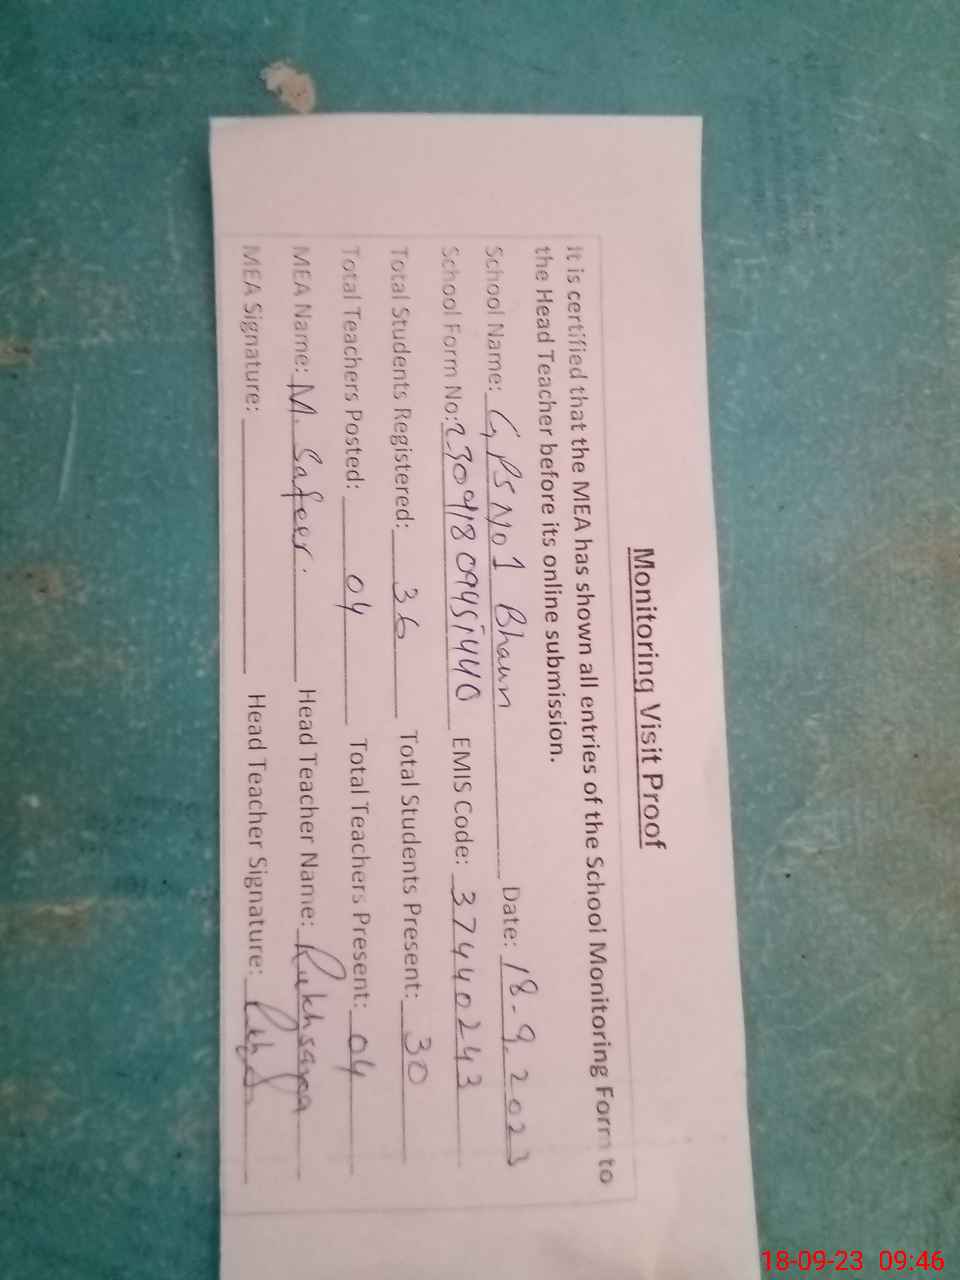 Monitoring Visit Proof
It is certified that the MEA has shown all entries of the School Monitoring Form to
the Head Teacher before its online submission.
School Name: GPS No 1 Bhaun Date: 18-9.2023
School Form No: EMIS Code: 37440243
Total Students Registered: 36 Total Students Present: 30
Total Teachers Posted: 04 Total Teachers Present: 04
MEA Name: M. Safeer. Head Teacher Name: Rukhsana
MEA Signature: Head Teacher Signature:
18-09-23 09:46